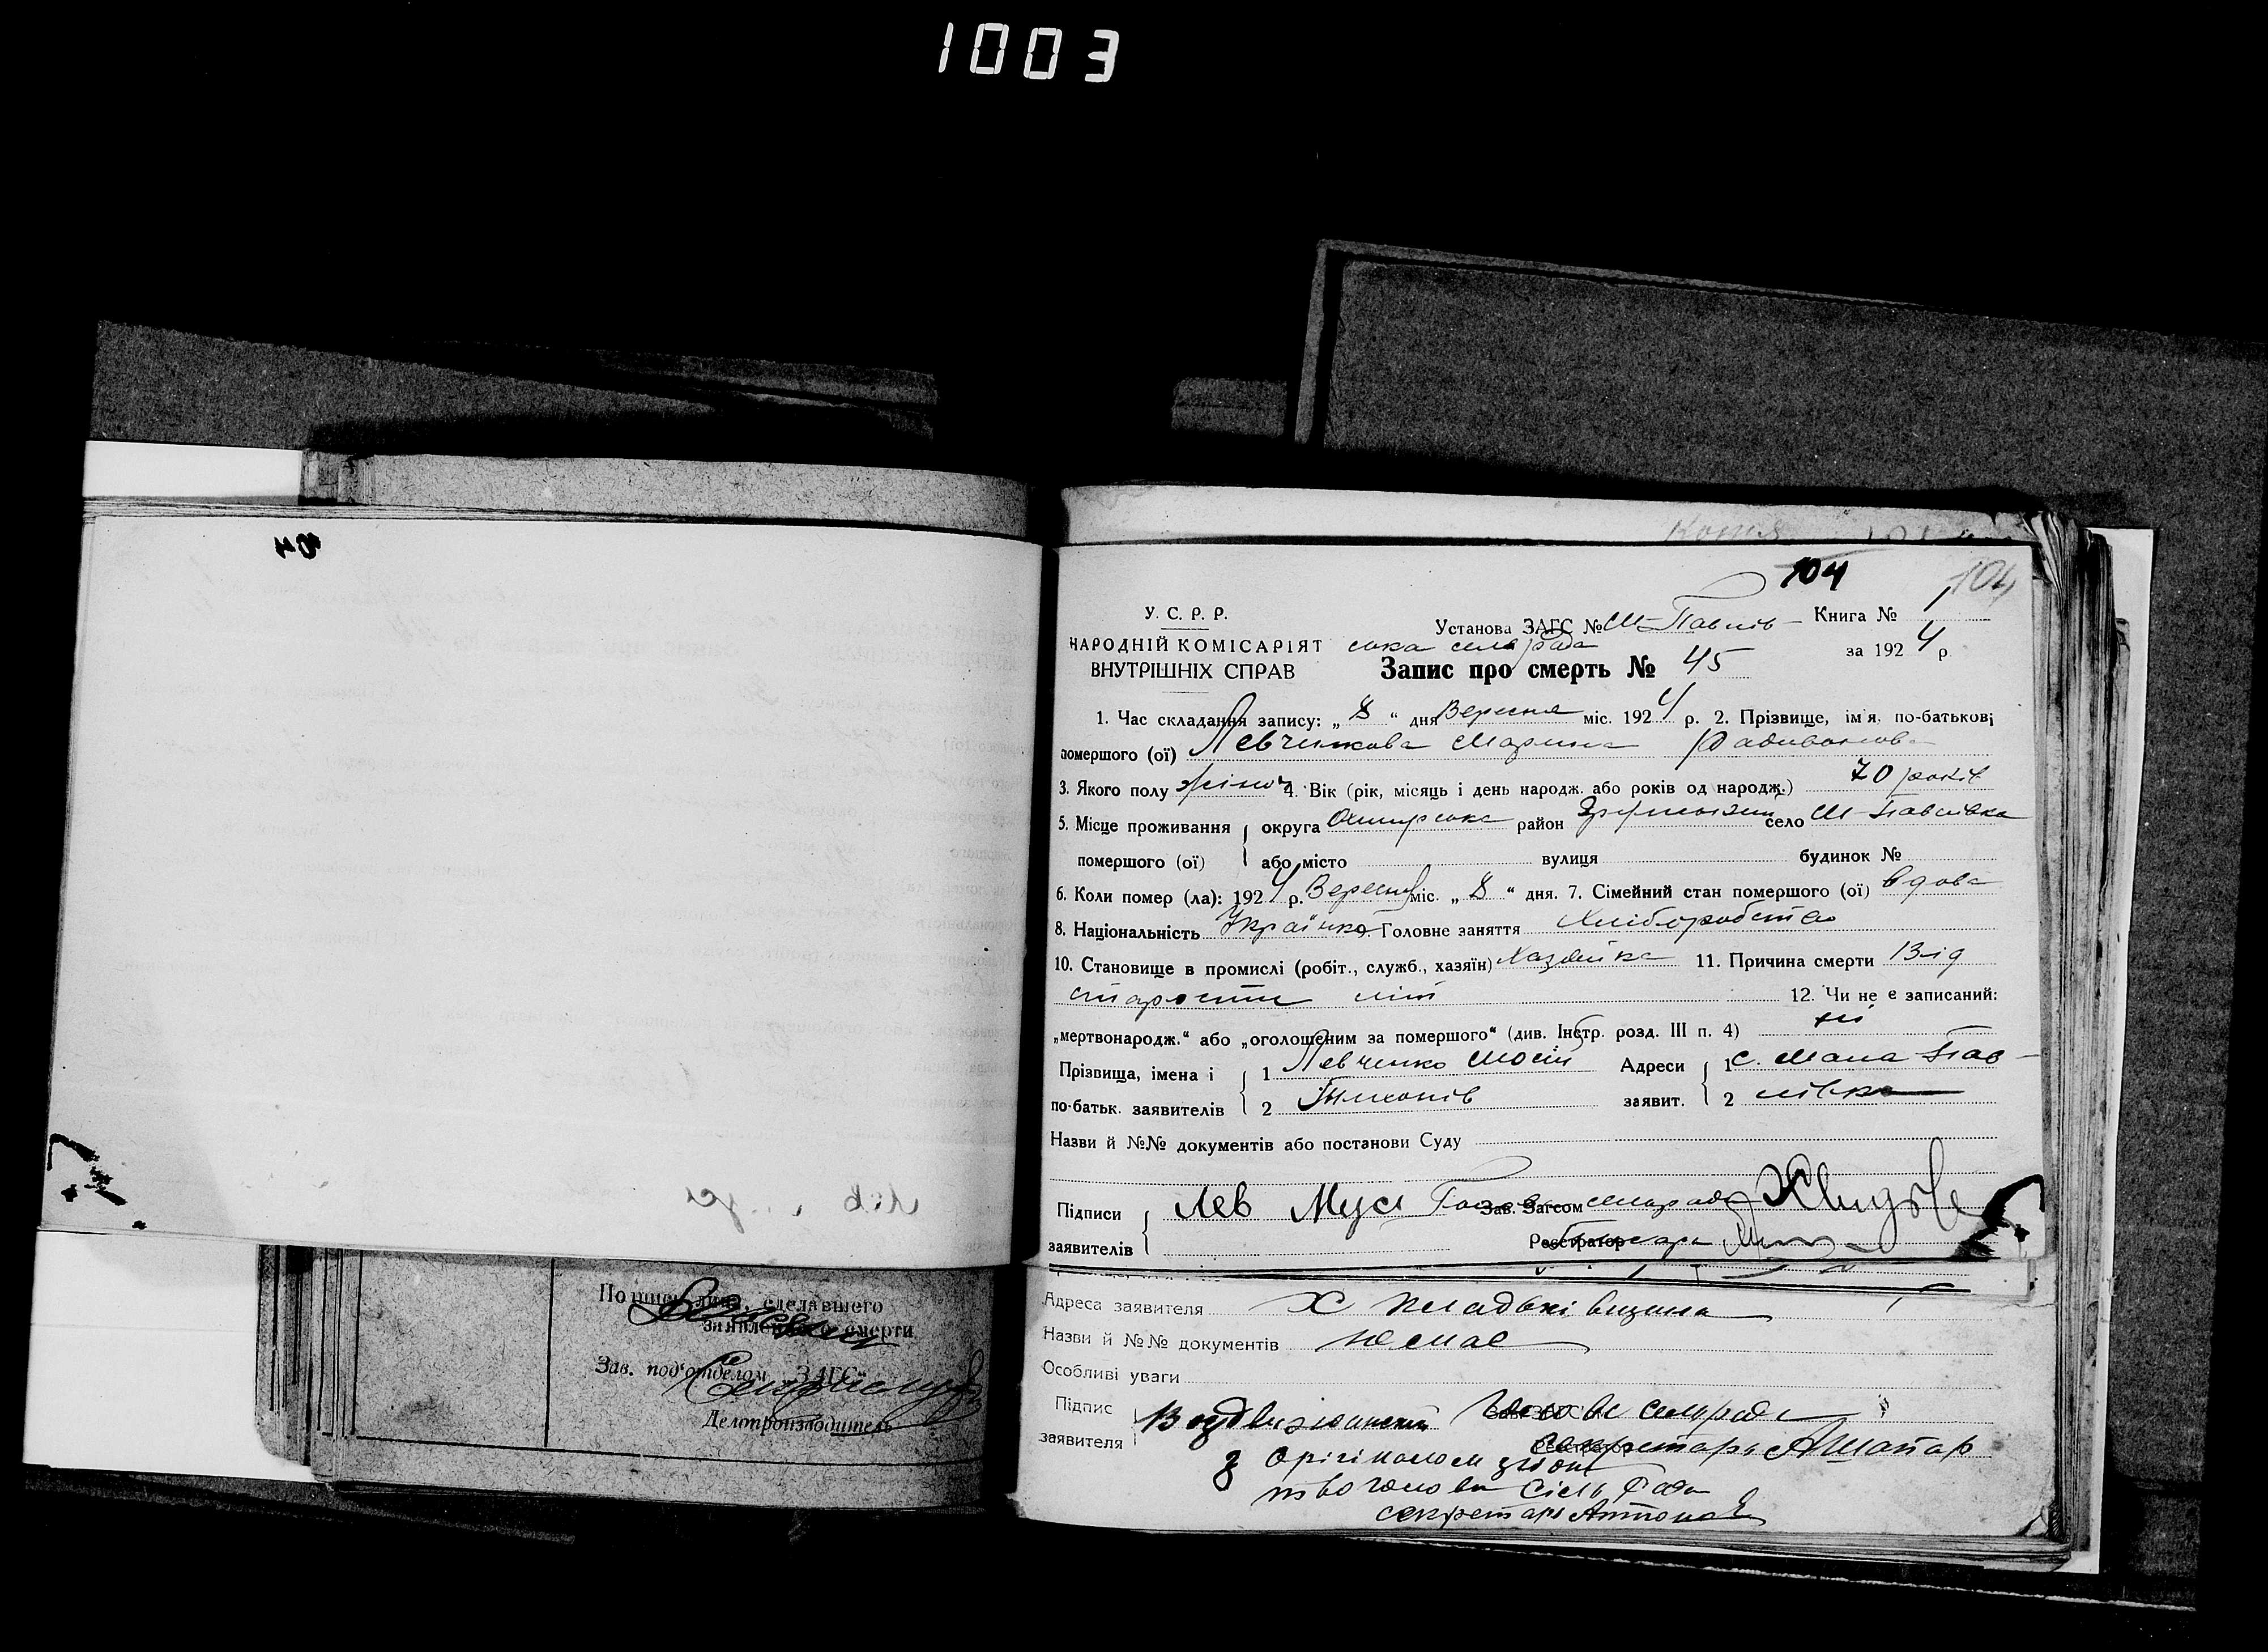 1003
104
104
104
У. С. Р. Р.
НАРОДНІЙ КОМІСАРІЯТ
ВНУТРІШНІХ СПРАВ
Установа ЗАГС № М-Павлів-
ська сельрада
Книга № 1
за 1924 р.
Запис про смерть № 45
1. Час складання запису: „ 8 “ дня Вересня міс. 1924 р. 2. Прізвище, ім'я, по-батькові
помершого (ої) Левченкова Марина
3. Якого полу жіноч 4. Вік (рік, місяць і день народж. або років од народж.) 70 років
5. Місце проживання округа Охтирська район село М-Павлівка
помершого (ої) або місто вулиця будинок №
6. Коли помер (ла): 1924 р. Вересня міс. „ 8 “ дня. 7. Сімейний стан помершого (ої) вдова
8. Національність Українка 9. Головне заняття Хліборобство
10. Становище в промислі (робіт., служб., хазяїн) Хазяйка 11. Причина смерти Від
старости літ 12. Чи не є записаний:
„мертвонародж.“ або „оголошеним за помершого“ (див. Інстр. розд. III п. 4) ні
Прізвища, імена і 1 Левченко Адреси 1 с. Мала Пав-
по-батьк. заявителів 2 заявит. 2 лівка
Назви й №№ документів або постанови Суду
Підписи Лев Мусі Голова Зав. Загсом сельради
заявителів Реєстратор
Адреса заявителя Х
Назви й №№ документів немає
Особливі уваги
Підпис Голова сельради
заявителя Реєстратор секретарь
З Орігіналом
Голова Сіль Ради
секретарь
Подпись лица, сделавшего
заявление о смерти
Зав. под'отделом „ЗАГС“
Делопроизводитель